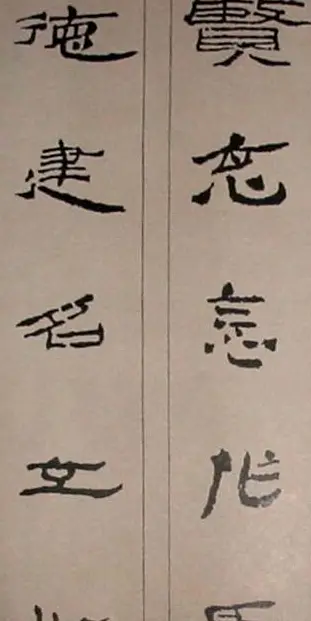 賢克念作
德建名立